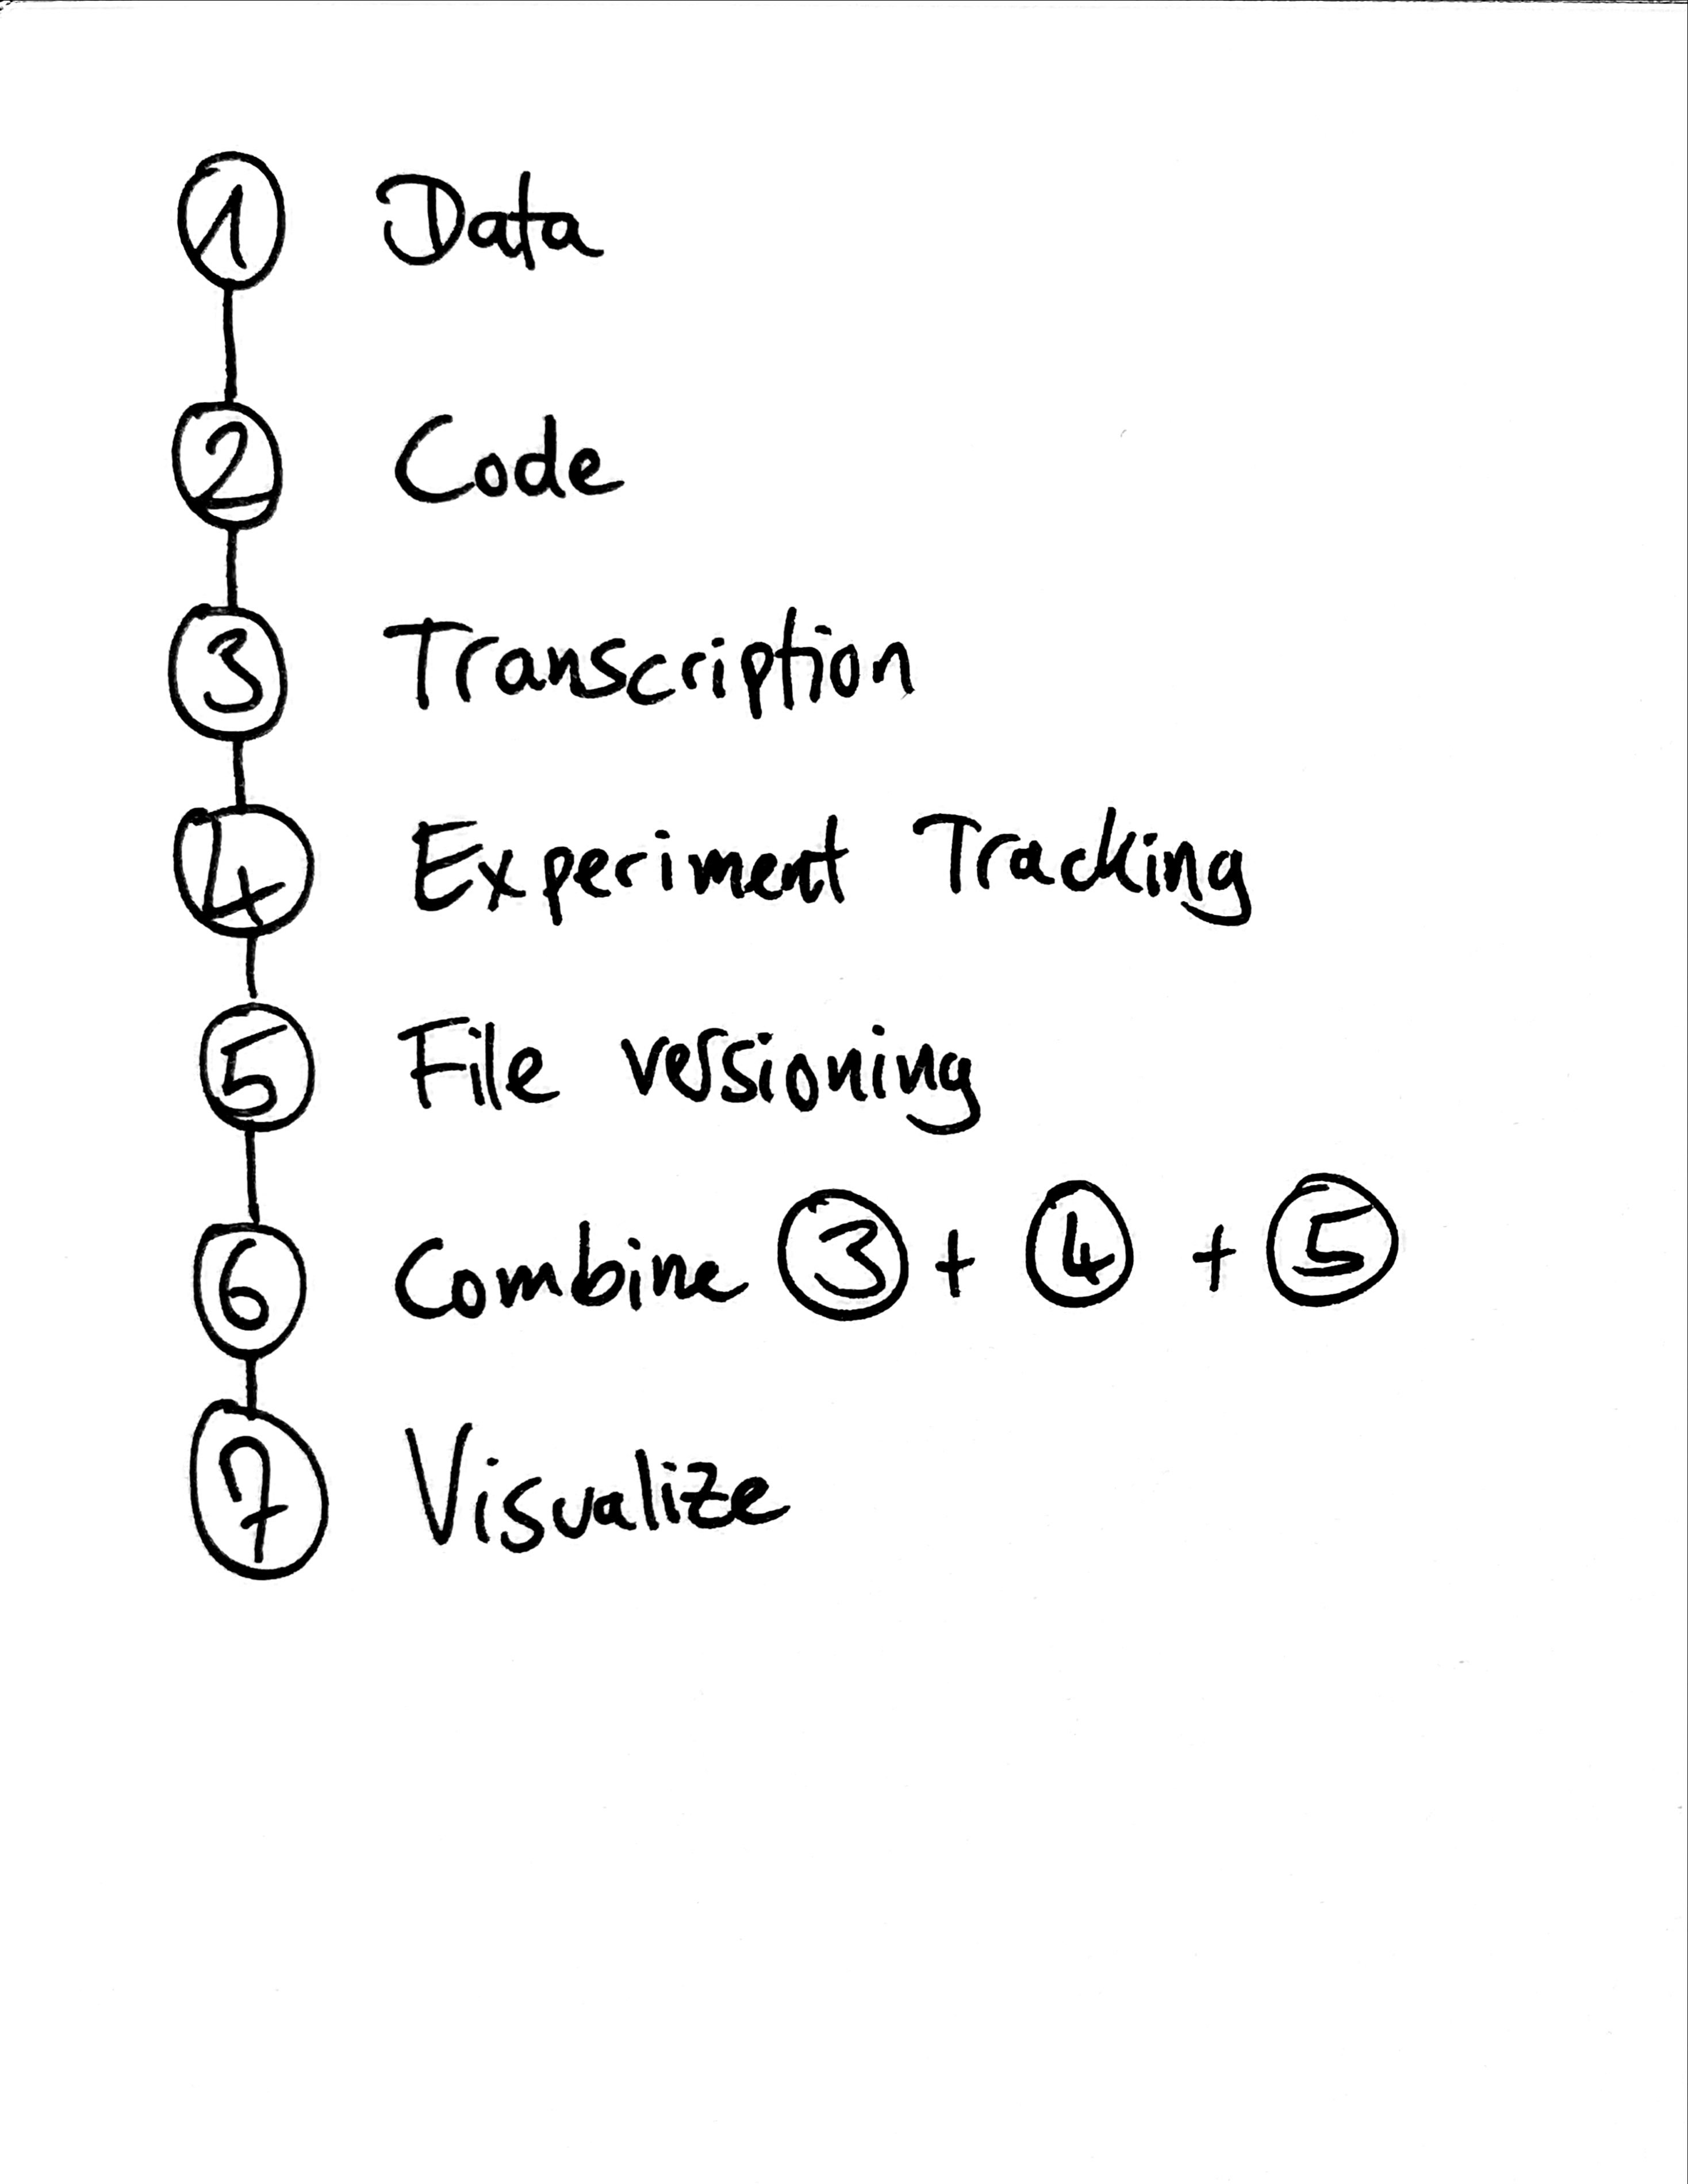 1 Data
2 Code
3 Transcription
4 Experiment Tracking
5 File versioning
6 Combine 3 + 4 + 5
7 Visualize